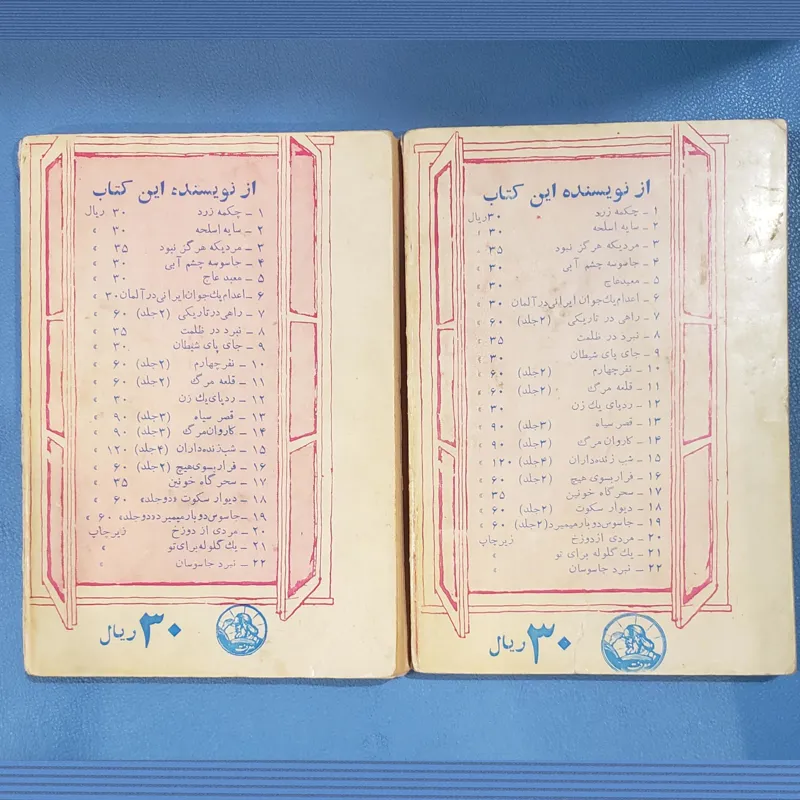 از نویسنده این کتاب
۱ - چکمه زرد ۳۰ ریال
۲ - سایه اسلحه ۳۰ »
۳ - مردیکه هرگز نبود ۳۵ »
۴ - جاسوسه چشم آبی ۳۰ »
۵ - معبد عاج ۳۰ »
۶ - اعدام یک جوان ایرانی در آلمان ۳۰ »
۷ - راهی در تاریکی (۲جلد) ۶۰ »
۸ - نبرد در ظلمت ۳۵ »
۹ - جای پای شیطان ۳۰ »
۱۰ - نفر چهارم (۲جلد) ۶۰ »
۱۱ - قلعه مرگ (۲جلد) ۶۰ »
۱۲ - ردپای یک زن ۳۰ »
۱۳ - قصر سیاه (۳جلد) ۹۰ »
۱۴ - کاروان مرگ (۳جلد) ۹۰ »
۱۵ - شب زنده داران (۴جلد) ۱۲۰ »
۱۶ - فرار بسوی هیچ (۲جلد) ۶۰ »
۱۷ - سحرگاه خونین ۳۵ »
۱۸ - دیوار سکوت «دوجلد» ۶۰ »
۱۹ - جاسوس دوبار میمیرد «دوجلد» ۶۰ »
۲۰ - مردی از دوزخ زیر چاپ
۲۱ - یک گلوله برای تو »
۲۲ - نبرد جاسوسان »
۳۰ ریال
از نویسنده این کتاب
۱ - چکمه زرد ۳۰ ریال
۲ - سایه اسلحه ۳۰ »
۳ - مردیکه هرگز نبود ۳۵ »
۴ - جاسوسه چشم آبی ۳۰ »
۵ - معبد عاج ۳۰ »
۶ - اعدام یک جوان ایرانی در آلمان ۳۰ »
۷ - راهی در تاریکی (۲جلد) ۶۰ »
۸ - نبرد در ظلمت ۳۵ »
۹ - جای پای شیطان ۳۰ »
۱۰ - نفر چهارم (۲جلد) ۶۰ »
۱۱ - قلعه مرگ (۲جلد) ۶۰ »
۱۲ - ردپای یک زن ۳۰ »
۱۳ - قصر سیاه (۳جلد) ۹۰ »
۱۴ - کاروان مرگ (۳جلد) ۹۰ »
۱۵ - شب زنده داران (۴جلد) ۱۲۰ »
۱۶ - فرار بسوی هیچ (۲جلد) ۶۰ »
۱۷ - سحرگاه خونین ۳۵ »
۱۸ - دیوار سکوت (۲جلد) ۶۰ »
۱۹ - جاسوس دوبار میمیرد (۲جلد) ۶۰ »
۲۰ - مردی از دوزخ زیر چاپ
۲۱ - یک گلوله برای تو »
۲۲ - نبرد جاسوسان »
۳۰ ریال